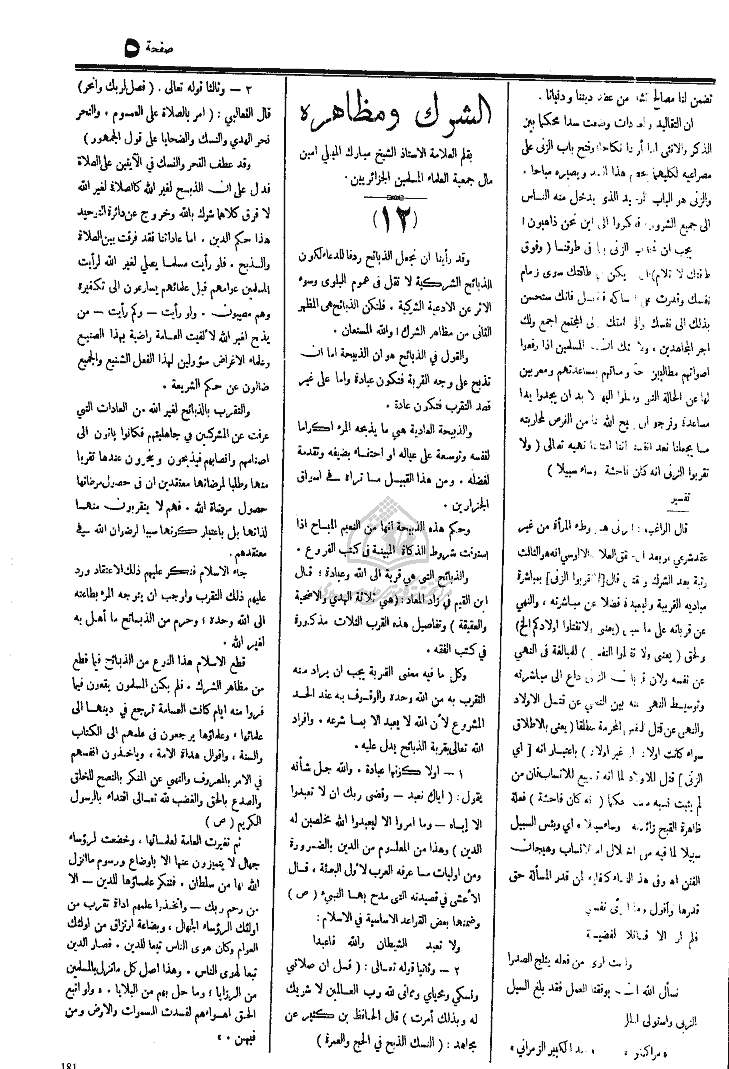 صفحة ٥
تضمن لنا مصالح من عقد ديننا ودنيانا .
ان التقاليد وضعت سدا محكما بين
الذكر والانثى نكاحا وفتح باب الزنى على
مصراعيه لكليهما هذا ويصيره مباحا .
والزنى هو الباب الذى يدخل منه الناس
الى جميع الشرور فكروا الى اين نحن ذاهبون ؟
يجب ان الزنى فى طوقنا ( وفوق
طاقتك لا تلام ) يكن فى طاقتك سوى زمام
نفسك وقدرت على فانك ستحسن
بذلك الى نفسك والى امتك فى المجتمع اجمع ولك
اجر المجاهدين ، ولا شك ان المسلمين اذا رفعوا
اصواتهم مطالبين بمساعدتهم ومعربين
لها عن الحالة التى اليها لا بد ان يجدوا يدا
مساعدة ونرجو ان الله من الفرص لمحاربته
ما يجعلنا نعد انفسنا اننا امتثلنا نهيه تعالى ( ولا
تقربوا الزنى انه كان فاحشة وساء سبيلا )
تفسير
قال الراغب : الزنى هو وطء المرأة من غير
عقد شرعي الالوسي انه هو الثالث
رتبة بعد الشرك قال [ لا تقربوا الزنى ] بمباشرة
مباديه القريبة والبعيدة فضلا عن مباشرته ، والنهي
عن قربانه على ( يعنى ولا تقتلوا اولادكم الخ )
ولحق ( يعنى ولا تقتلوا النفس ) للمبالغة فى النهي
عن نفسه ولان داع الى مباشرته
وتوسيط النهي عنه بين النهي عن قتل الاولاد
والنهي عن قتل النفس المحرمة مطلقا ( يعنى بالاطلاق
سواء كانت اولادا او غير اولاد ) باعتبار انه [ اي
الزنى ] قتل للاولاد لما انه تضييع للانساب فان من
لم يثبت نسبه ( انه كان فاحشة ) فعلة
ظاهرة القبح زائدته وساء سبيلا ، اي وبئس السبيل
سبيلا لما فيه من اختلال الانساب وهيجان
الفتن اه وفى هذا كفاية لمن قدر المسألة حق
قدرها وأقول نفسي
فلم ار الا قائلا لفضيلة
ولست ارى من فعله يثلج الصدرا
نسأل الله ان يوفقنا العمل فقد بلغ السيل
الزبى واستولى
« مراكش » الكبير الزمراني »
الشرك ومظاهره
بقلم العلامة الاستاذ الشيخ مبارك الميلي امين
مال جمعية العلماء المسلمين الجزائريين .
( ١٢ )
وقد رأينا ان نجعل الذبائح ردفا للدعاء لكون
الذبائح الشركية لا تقل فى عموم البلوى وسوء
الاثر عن الادعية الشركية . فلتكن الذبائح هى المظهر
الثانى من مظاهر الشرك ؛ والله المستعان .
والقول فى الذبائح هو ان الذبيحة اما ان
تذبح على وجه القربة فتكون عبادة واما على غير
قصد التقرب فتكون عادة .
والذبيحة العادية هي ما يذبحه المرء اكراما
لنفسه وتوسعة على عياله او احتفاء بضيفه وتقدمة
لفضله . ومن هذا القبيل ما تراه فى اسواق
الجزارين .
وحكم هذه الذبيحة انها من النعيم المباح اذا
استوفت شروط الذكاة المبينة فى كتب الفروع .
والذبائح التى هي قربة الى الله وعبادة ؛ قال
ابن القيم فى زاد المعاد : ( هي ثلاثة الهدي والاضحية
والعقيقة ) وتفاصيل هذه القرب الثلاث مذكورة
فى كتب الفقه .
وكل ما فيه معنى القربة يجب ان يراد منه
التقرب به من الله وحدة والوقوف به عند الحد
المشروع لأن الله لا يعبد الا بما شرعه . وافراد
الله تعالى بقربة الذبائح يدل عليه .
١ — اولا كونها عبادة . والله جل شأنه
يقول : ( اياك نعبد — وقضى ربك ان لا تعبدوا
الا إياه — وما امروا الا ليعبدوا الله مخلصين له
الدين ) وهذا من المعلوم من الدين بالضرورة
ومن اوليات ما عرفه العرب لأول البعثة . قال
الأعشى فى قصيدته التى مدح بها النبيء ( ص )
وضمنها بعض القواعد الاساسية فى الاسلام :
ولا تعبد الشيطان والله فاعبدا
٢ — وثانيا قوله تعالى : ( قل ان صلاتي
ونسكي ومحياي ومماتى لله رب العالمين لا شريك
له وبذلك أمرت ) قال الحافظ بن كثير عن
مجاهد : ( النسك الذبح فى الحج والعمرة )
٣ — وثالثا قوله تعالى . ( فصل لربك وانحر )
قال الثعالبي : ( امر بالصلاة على العموم . والنحر
نحر الهدي والنسك والضحايا على قول الجمهور )
وقد عطف النحر والنسك فى الآيتين على الصلاة
فدل على ان الذبح لغير الله كالصلاة لغير الله
لا فرق كلاهما شرك بالله وخروج عن دائرة التوحيد
هذا حكم الدين . اما عاداتنا فقد فرقت بين الصلاة
والذبح . فلو رأيت مسلما يصلي لغير الله لرأيت
المسلمين عوامهم قبل علمائهم يسارعون الى تكفيره
وهم مصيبون . ولو رأيت — وكم رأيت — من
يذبح لغير الله لألفيت العامة راضية بهذا الصنيع
وعلماء الاغراض مسؤولين لهذا الفعل الشنيع والجميع
ضالون عن حكم الشريعة .
والتقرب بالذبائح لغير الله من العادات التي
عرفت عن المشركين فى جاهليتهم فكانوا ياتون الى
اصنامهم وانصابهم فيذبحون وينحرون عندها تقربا
منها وطلبا لمرضاتها معتقدين ان فى حصول مرضاتها
حصول مرضاة الله . فهم لا يتقربون منها
لذاتها بل باعتبار كونها سببا لرضوان الله فى
معتقدهم .
جاء الاسلام فنكر عليهم ذلك الاعتقاد ورد
عليهم ذلك التقرب واوجب ان يتوجه المرء بطاعته
الى الله وحدة ؛ وحرم من الذبائح ما أهل به
لغير الله .
قطع الاسلام هذا النوع من الذبائح فيما قطع
من مظاهر الشرك . فلم يكن المسلمون يقعون فيما
فروا منه ايام كانت العامة ترجع فى دينها الى
علمائها ؛ وعلماؤها يرجعون فى علمهم الى الكتاب
والسنة ، واقوال هداة الامة ، وياخذون انفسهم
فى الامر بالمعروف والنهي عن المنكر بالنصح للخلق
والصدع بالحق والغضب لله تعالى اقتداء بالرسول
الكريم ( ص )
ثم تغيرت العامة لعلمائها ، وخضعت لرؤساء
جهال لا يتميزون عنها الا باوضاع ورسوم ما انزل
الله بها من سلطان . فتنكر علماؤها للدين — الا
من رحم ربك — واتخذوا علمهم اداة تقرب من
اولئك الرؤساء الجهال ، وبضاعة ارتزاق من اولئك
العوام وكان هوى الناس تبعا للدين . فصار الدين
تبعا لهوى الناس . وهذا اصل كل ما نزل بالمسلمين
من الرزايا ؛ وما حل بهم من البلايا . « ولو اتبع
الحق اهواءهم لفسدت السموات والارض ومن
فيهن . »
181